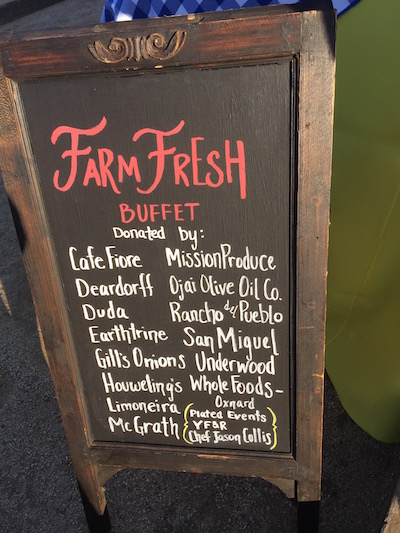 Farm Fresh
BUFFET
Donated by:
Cafe Fiore
Deardorff
Duda
Earthtrine
Gill's Onions
Houweling's
Limoneira
McGrath
Mission Produce
Ojai Olive Oil Co.
Rancho del Pueblo
San Miguel
Underwood
Whole Foods-
Oxnard
Plated Events
YFBR
Chef Jason Collis